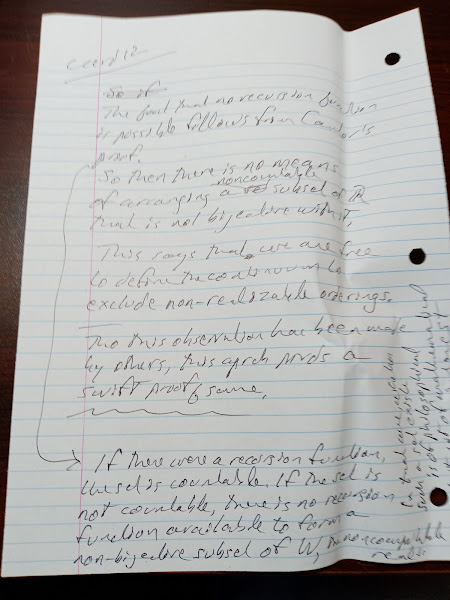 card 12
So if
The fact that no recursion function
is possible follows from Cantor's
proof.
So then there is no means
noncountable
of arranging a subset of R
that is not bijective with it.
This says that we are free
to define the continuum to
exclude non-realizable orderings.
Tho this observation has been made
by others, this aprch prvds a
swift proof of same.
If there were a recursion function,
the set is countable. If the set is
not countable, there is no recursion
function available to form a
non-bijective subset of W, the noncomputable
reals.
such a set exists
is of philosophical
mathematical
interest